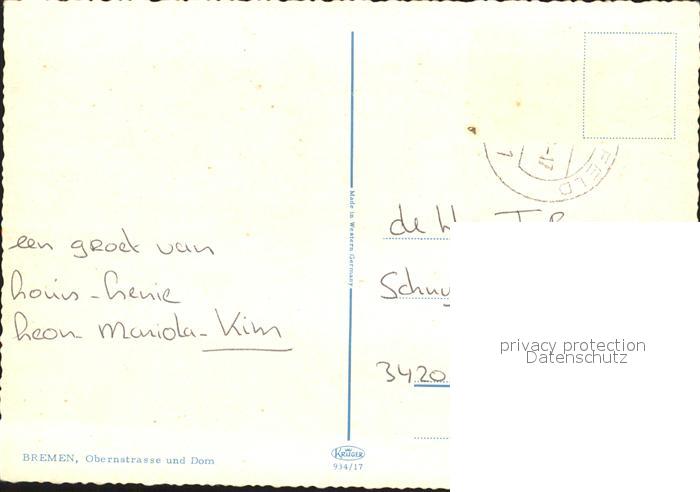 een groet van
Louis - Henie
Leon - Mariola - Kim
BREMEN, Obernstrasse und Dom
Made in Western Germany
KRÜGER
934/17
1
-17
FELD
de H
Schuy
3420
privacy protection
Datenschutz